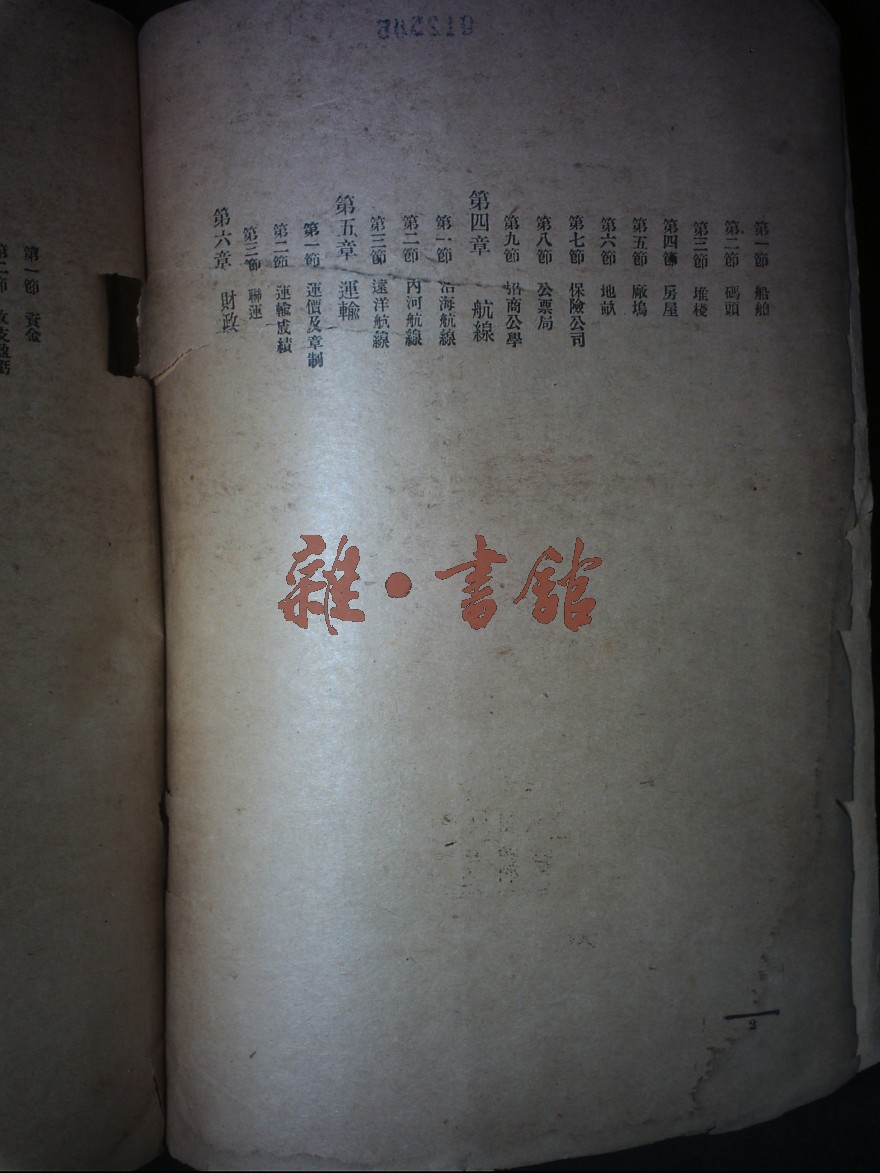 第一節　船舶
第二節　碼頭
第三節　堆棧
第四節　房屋
第五節　廠塢
第六節　地畝
第七節　保險公司
第八節　公票局
第九節　招商公學
第四章　航線
第一節　沿海航線
第二節　內河航線
第三節　遠洋航線
第五章　運輸
第一節　運價及章制
第二節　運輸成績
第三節　聯運
第六章　財政
2
第一節　資金
雜・書館